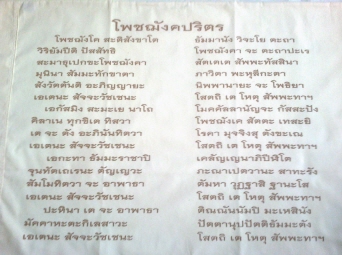 โพชฌังคปริตร
โพชฌังโค สะติสังขาโต ธัมมานัง วิจะโย ตะถา
วิริยัมปีติ ปัสสัทธิ โพชฌังคา จะ ตะถาปะเร
สะมาธุเปกขะโพชฌังคา สัตเตเต สัพพะทัสสินา
มุนินา สัมมะทักขาตา ภาวิตา พะหุลีกะตา
สังวัตตันติ อะภิญญายะ นิพพานายะ จะ โพธิยา
เอเตนะ สัจจะวัชเชนะ โสตถิ เต โหตุ สัพพะทาฯ
เอกัสมิง สะมะเย นาโถ โมคคัลลานัญจะ กัสสะปัง
คิลาเน ทุกขิเต ทิสวา โพชฌังเค สัตตะ เทสะยิ
เต จะ ตัง อะภินันทิตวา โรคา มุจจิงสุ ตังขะเณ
เอเตนะ สัจจะวัชเชนะ โสตถิ เต โหตุ สัพพะทาฯ
เอกะทา ธัมมะราชาปิ เคลัญเญนาภิปีฬิโต
จุนทัตเถเรนะ ตัญเญวะ ภะณาเปตวานะ สาทะรัง
สัมโมทิตวา จะ อาพาธา ตัมหา วุฏฐาสิ ฐานะโส
เอเตนะ สัจจะวัชเชนะ โสตถิ เต โหตุ สัพพะทาฯ
ปะหีนา เต จะ อาพาธา ติณณันนัมปิ มะเหสินัง
มัคคาหะตะกิเลสาวะ ปัตตานุปปัตติธัมมะตัง
เอเตนะ สัจจะวัชเชนะ โสตถิ เต โหตุ สัพพะทาฯ